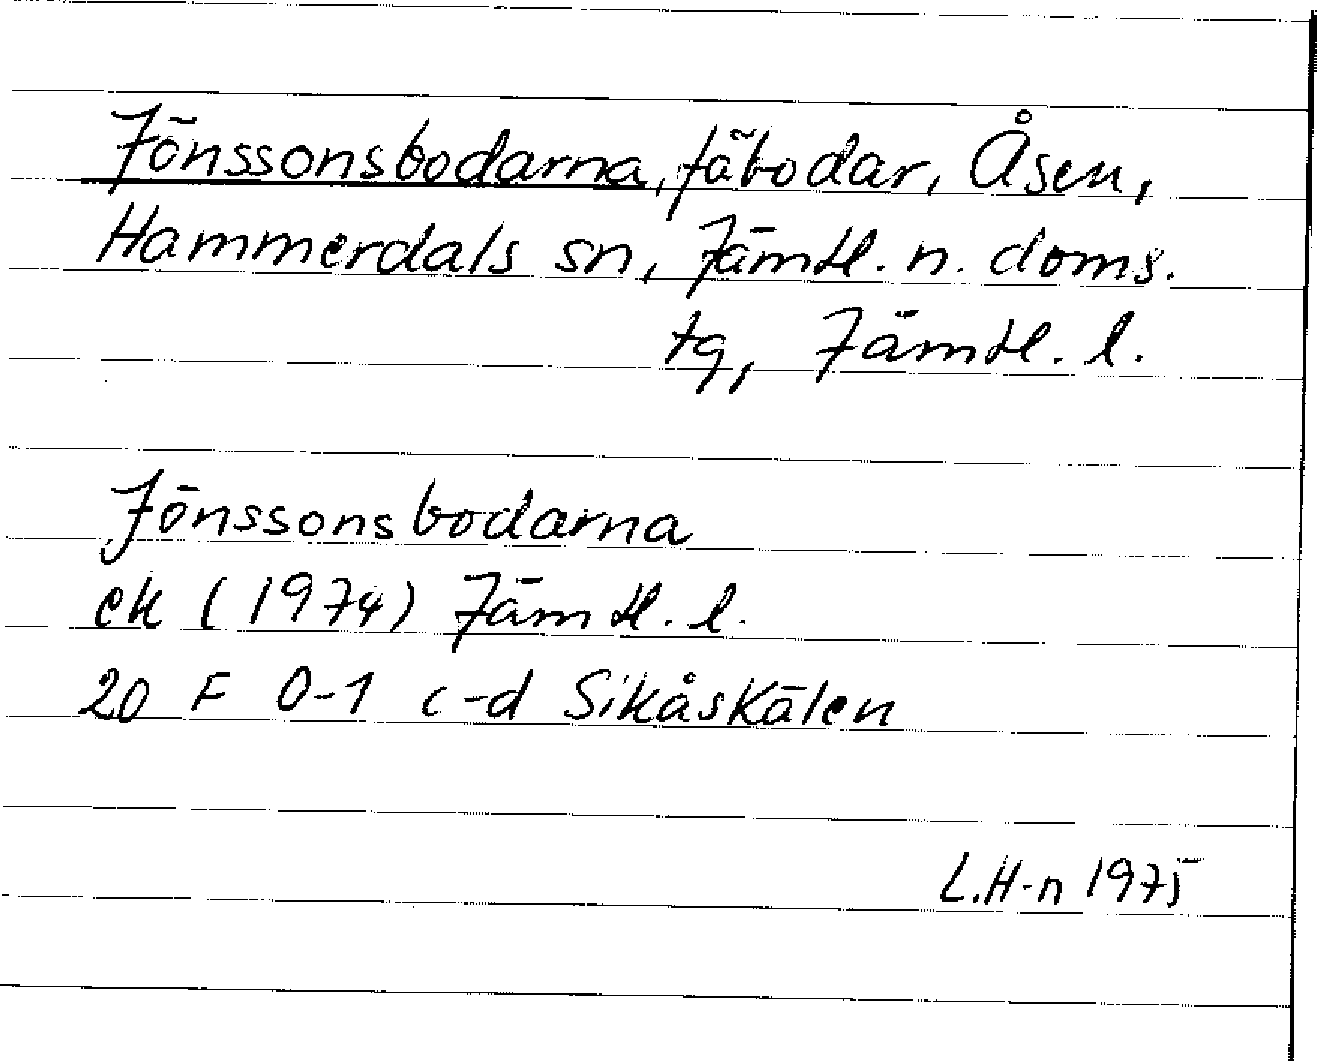 Jönssonsbodarna, fäbodar, Åsen,
Hammerdals sn, Jämtl. n. doms.
tg, Jämtl. l.
Jönssonsbodarna
ek (1974) Jämtl. l.
20 F 0-1 c-d Sikåskälen
L.H-n 1975